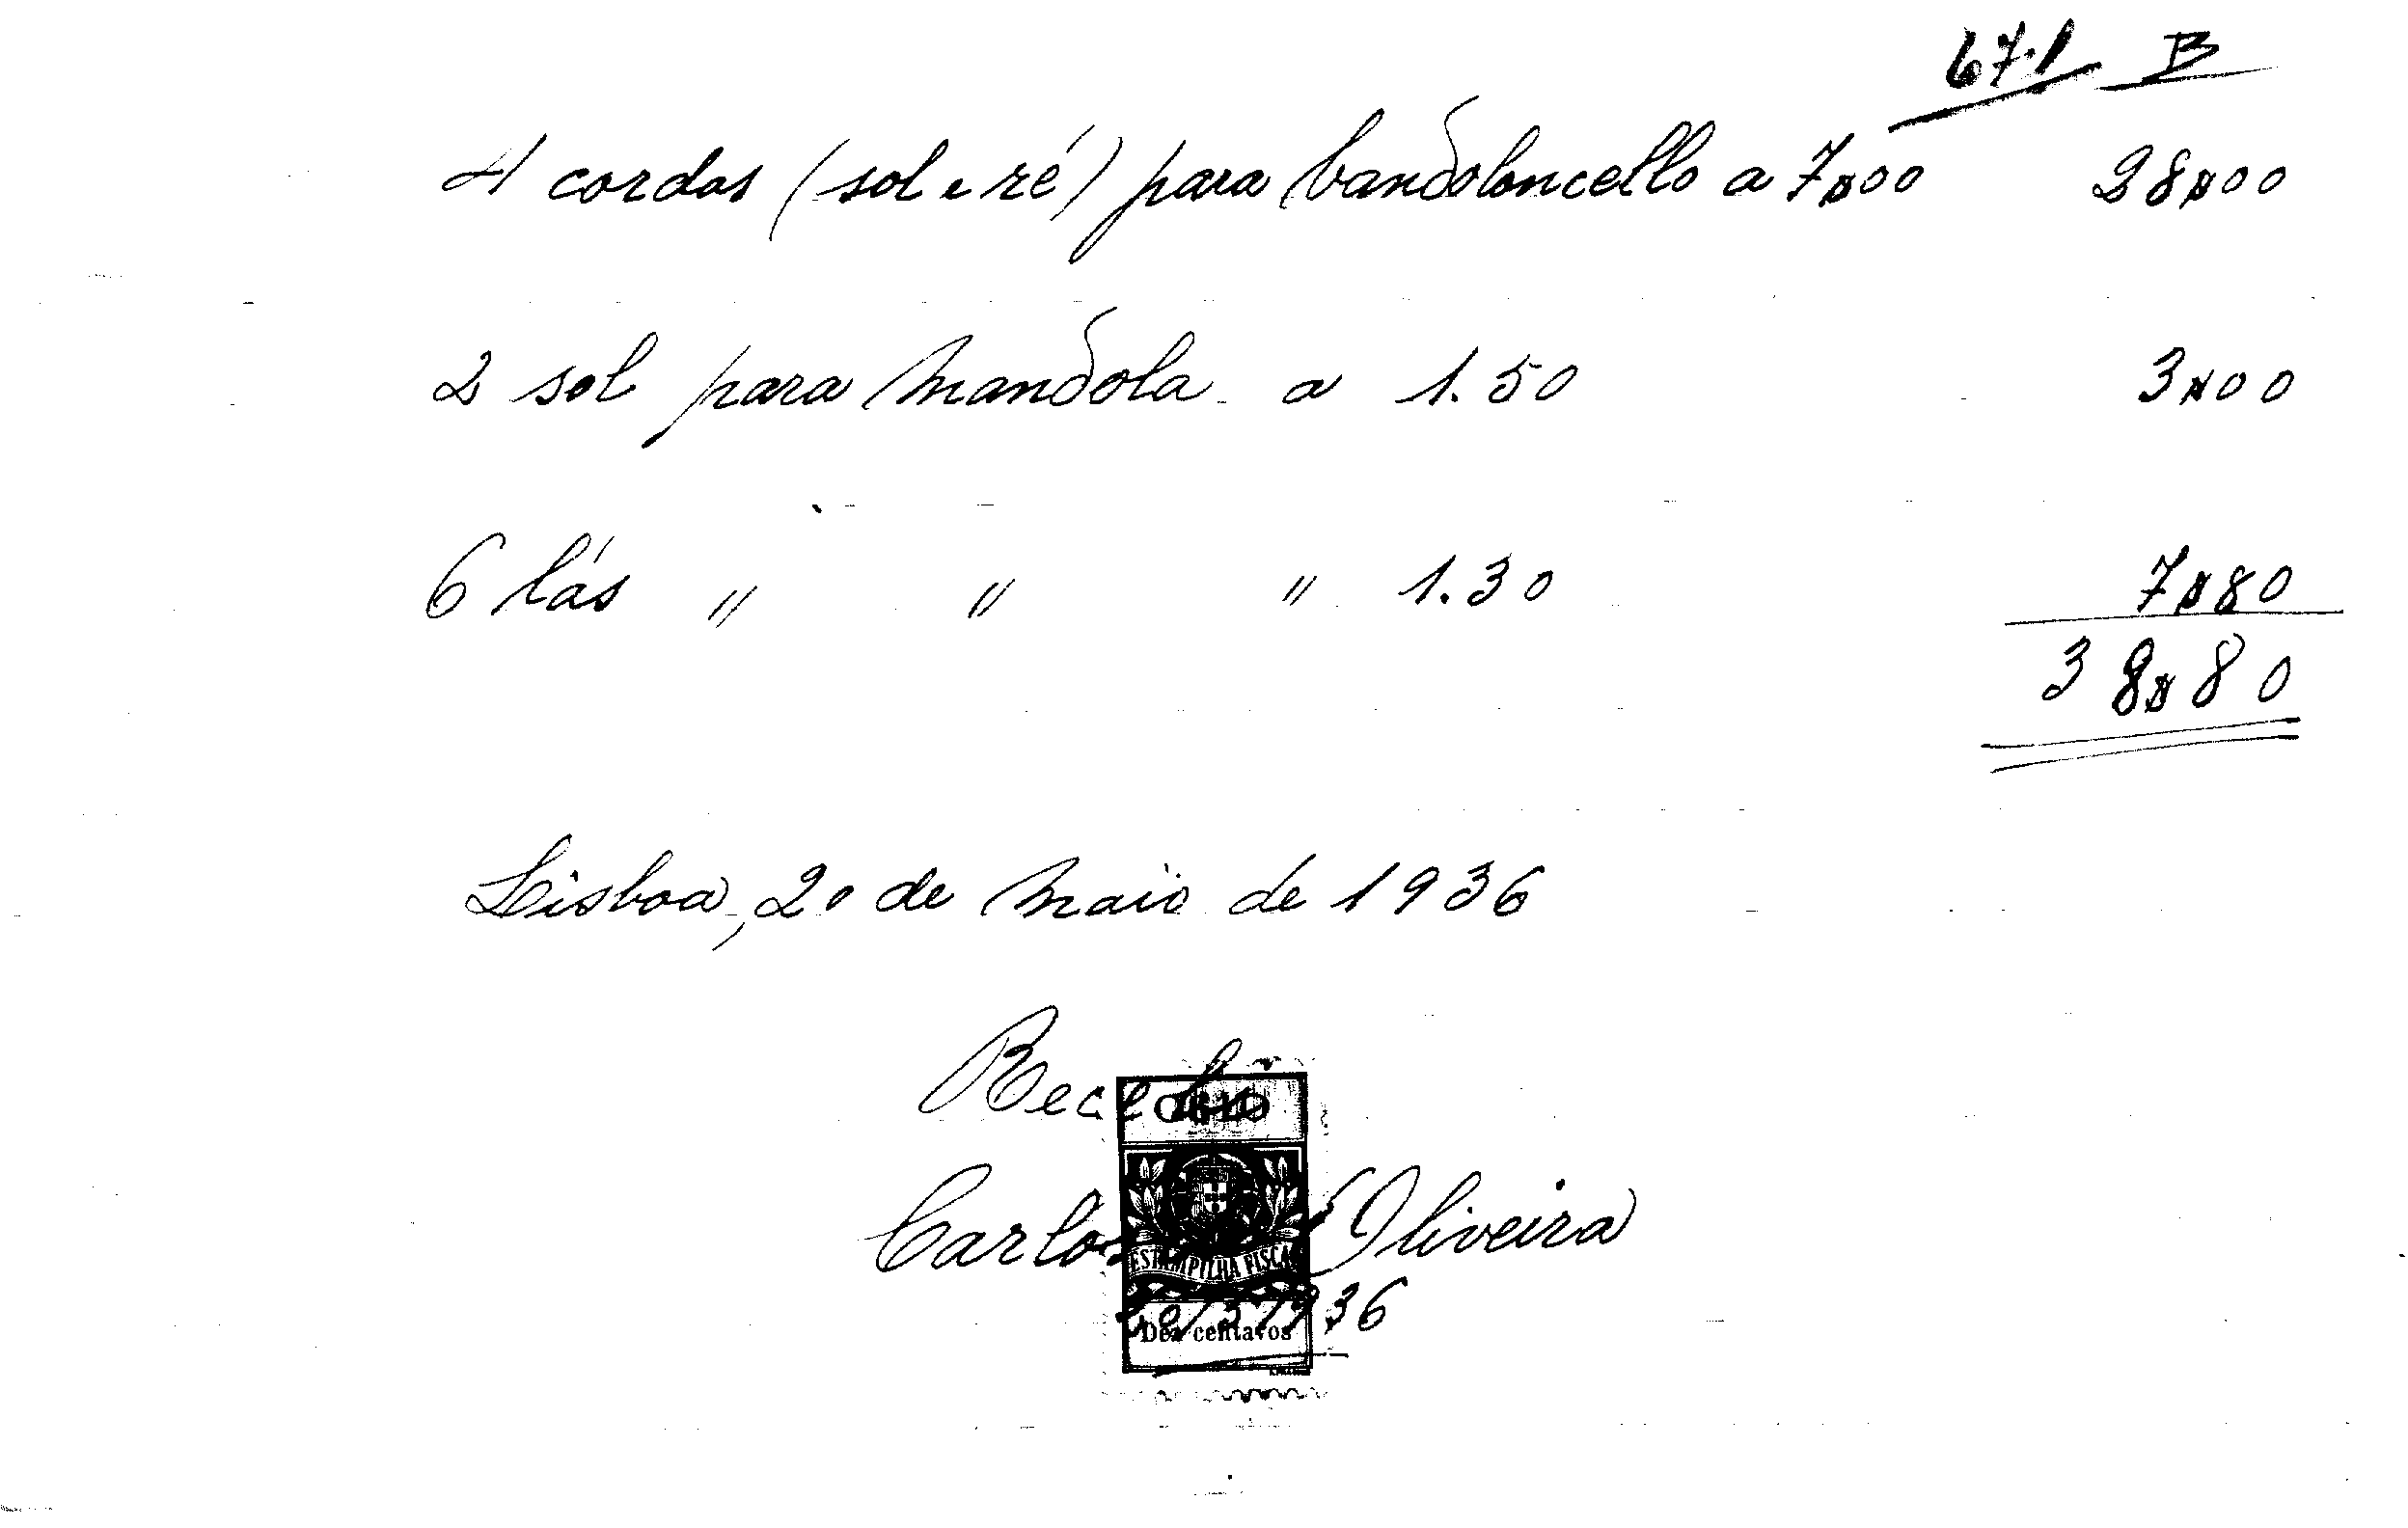 67.1 B
4 cordas (sol e ré) para bandoloncello a 7$00 28$00
2 sol para mandola a 1.50 3$00
6 lás " " " 1.30 7$80
38$80
Lisboa, 20 de maio de 1936
Recebi
Carlos Oliveira
ESTAMPILHA FISCAL
20/5/936
Dez centavos